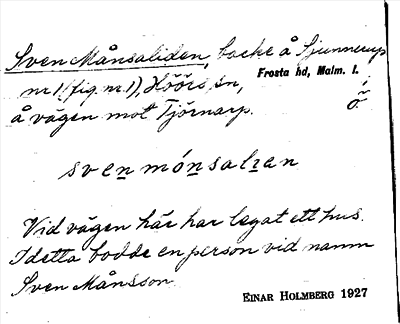 Sven Månsaliden, backe å Sjunnerup
nr 1 (fig. nr. 1), Höörs sn, Frosta hd, Malm. l.
å vägen mot Tjörnarp.
svenmónsalıen
Vid vägen här har legat ett hus.
I detta bodde en person vid namn
Sven Månsson.
EINAR HOLMBERG 1927